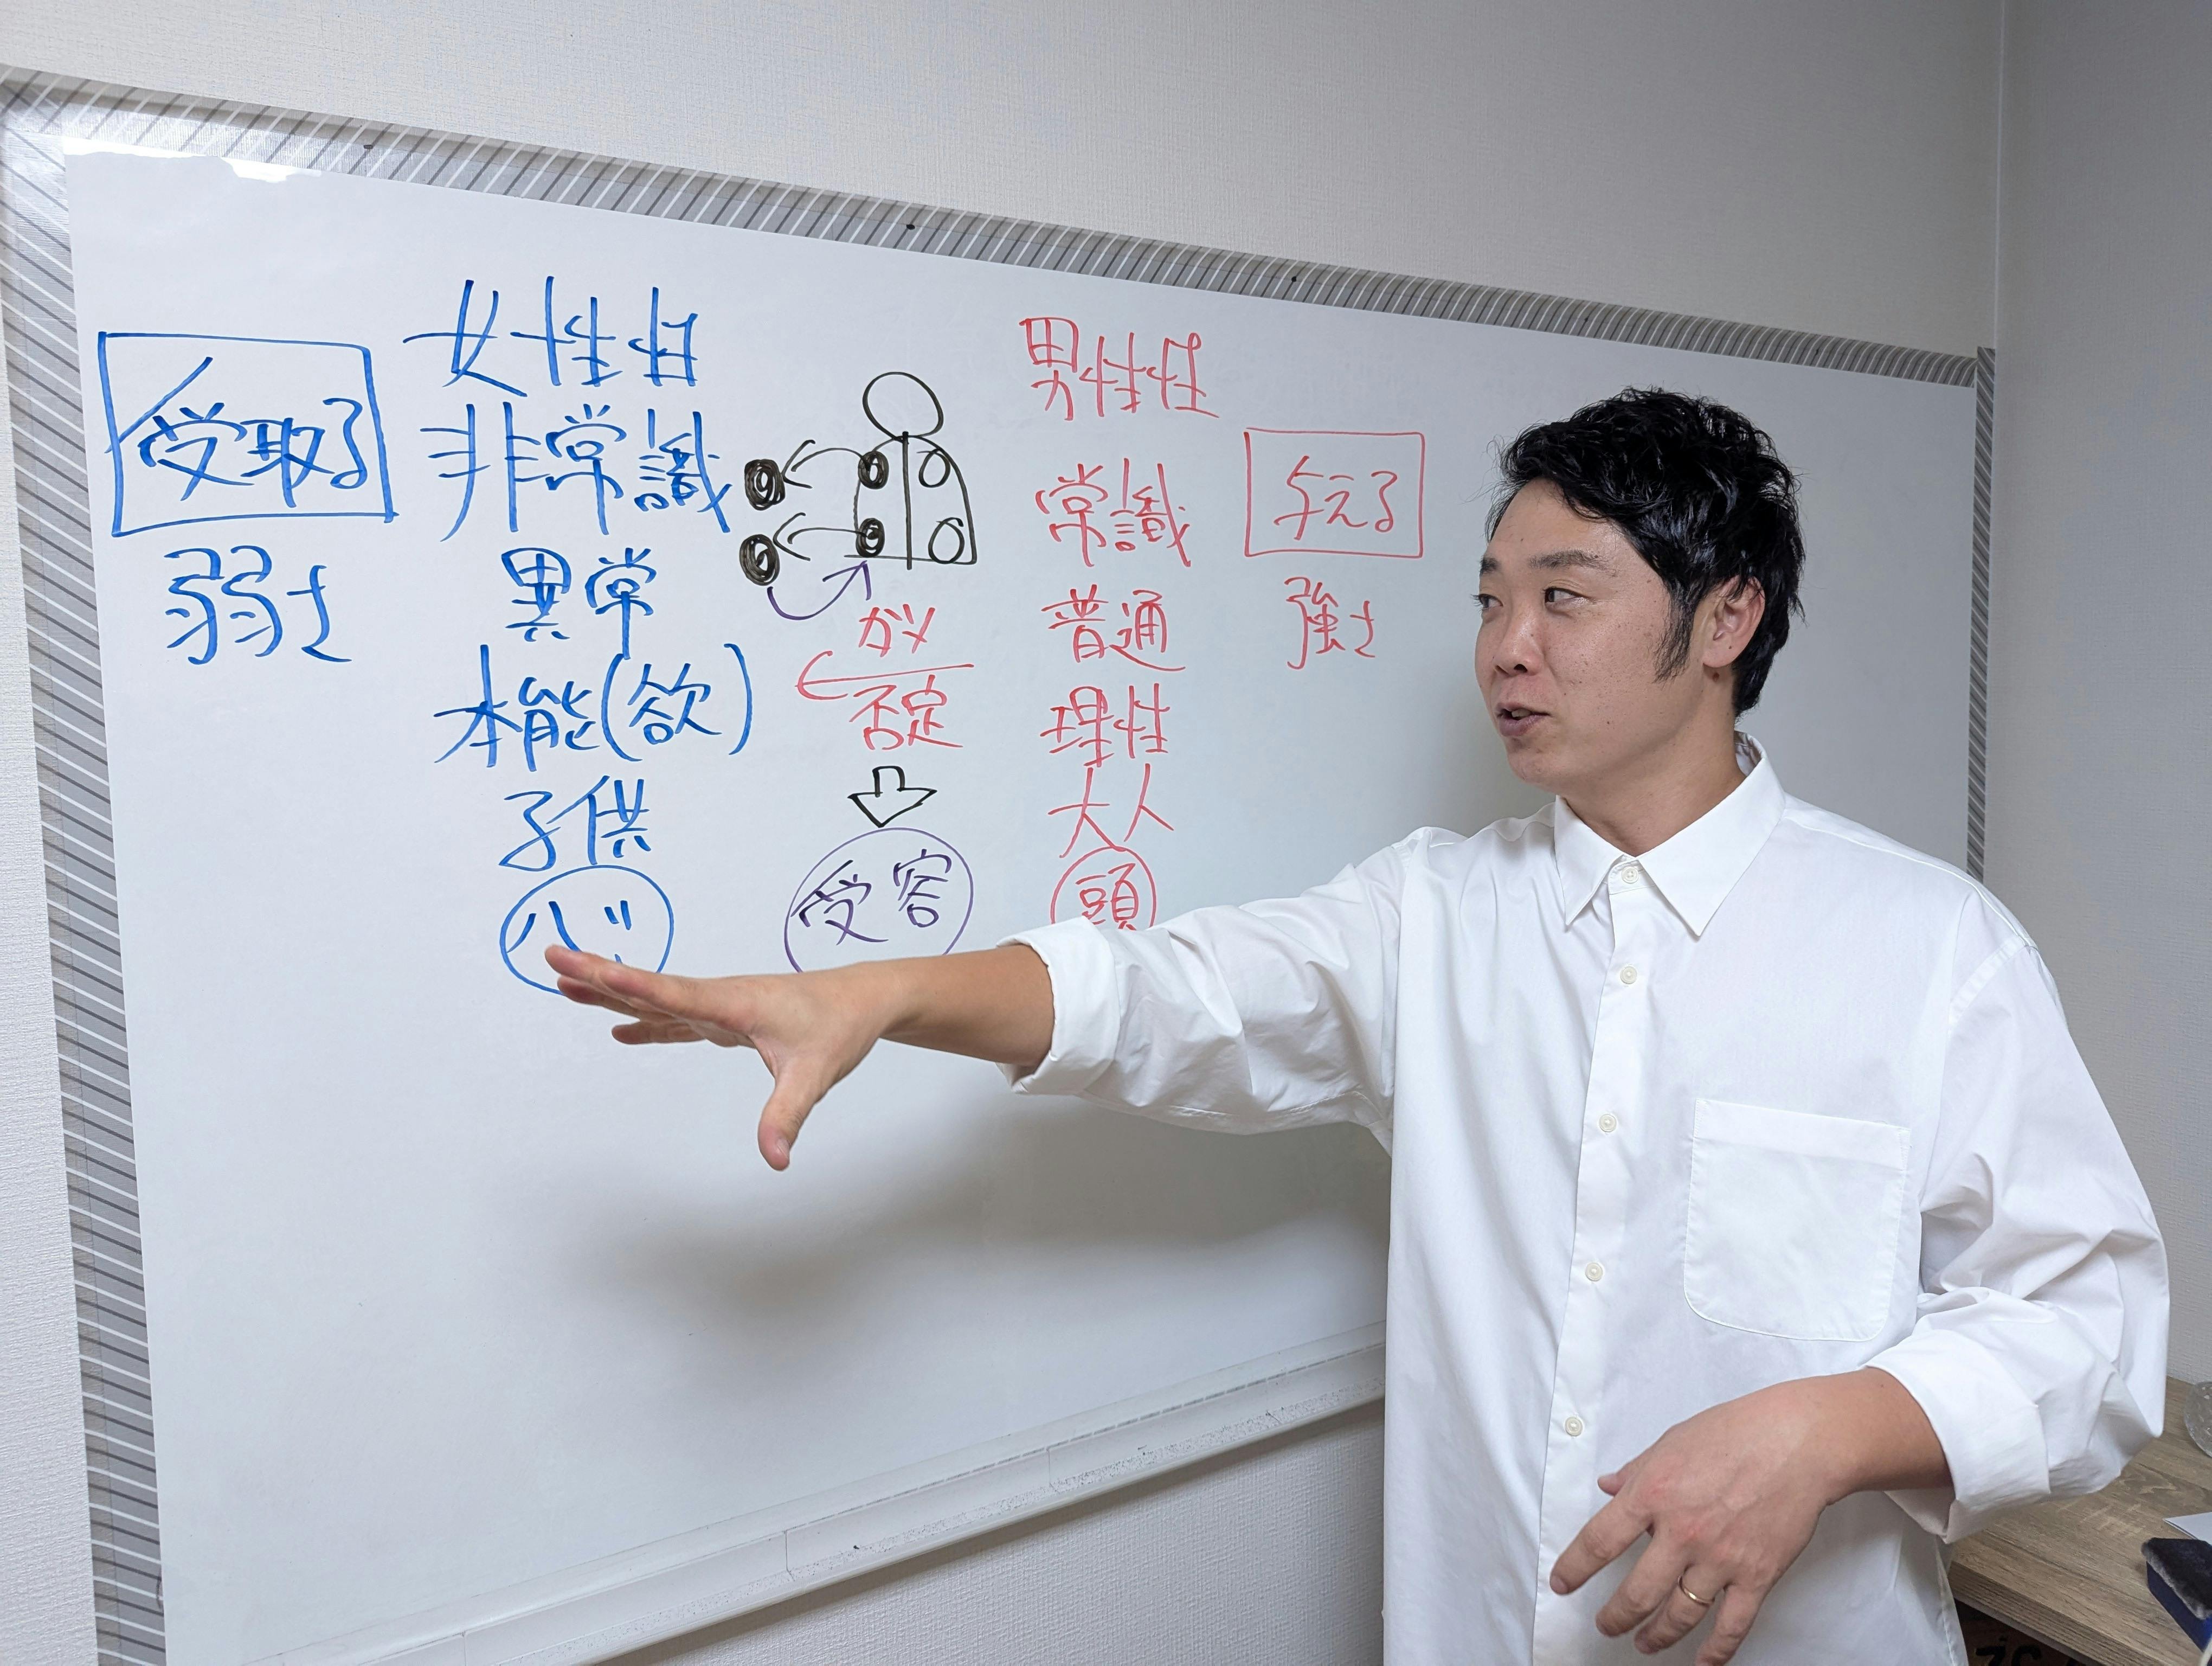 受取る
弱さ
女性性
非常識
異常
本能(欲)
子供
心
否定
受容
男性性
常識
普通
理性
大人
頭
与える
強さ